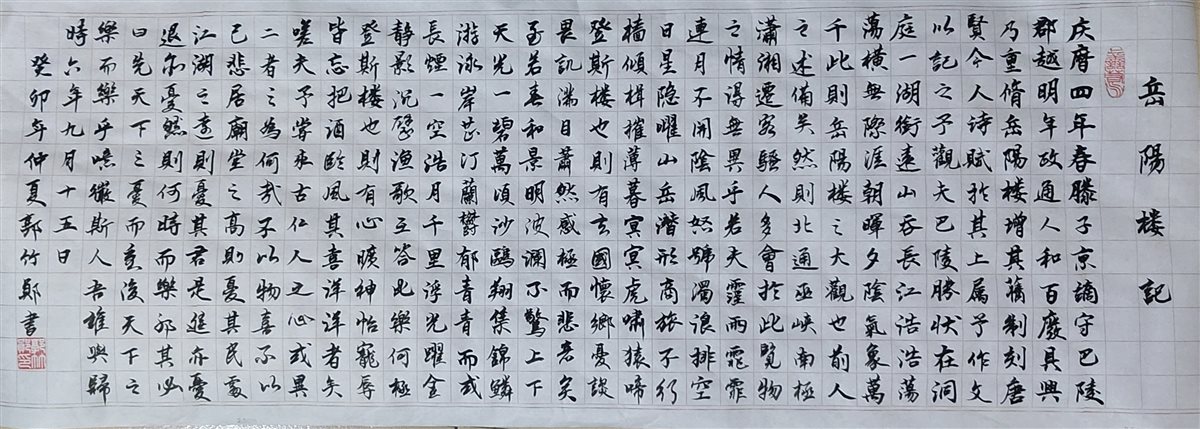 岳陽楼記
庆曆四年春滕子京謫守巴陵
郡越明年政通人和百廢具興
乃重脩岳陽楼增其舊制刻唐
賢今人诗賦於其上属予作文
以記之予觀夫巴陵勝状在洞
庭一湖銜遠山吞長江浩浩蕩
蕩横無際涯朝暉夕陰氣象萬
千此則岳陽楼之大觀也前人
之述備矣然則北通巫峡南極
瀟湘遷客騷人多會於此覧物
之情得無異乎若夫霪雨霏霏
連月不開陰風怒號濁浪排空
日星隐曜山岳潛形商旅不行
檣傾楫摧薄暮冥冥虎嘯猿啼
登斯楼也則有去國懷鄉憂讒
畏譏滿目蕭然感極而悲者矣
至若春和景明波澜不驚上下
天光一碧萬頃沙鷗翔集錦鱗
游泳岸芷汀蘭鬱郁青青而或
長煙一空浩月千里浮光躍金
静影沉璧渔歌互答此樂何極
登斯楼也則有心曠神怡寵辱
皆忘把酒臨风其喜洋洋者矣
嗟夫予嘗求古仁人之心或異
二者之為何哉不以物喜不以
己悲居廟堂之高則憂其民處
江湖之遠則憂其君是進亦憂
退亦憂然則何時而樂耶其必
曰先天下之憂而憂後天下之
樂而樂乎噫微斯人吾誰與歸
時六年九月十五日
癸卯年仲夏郭竹鄭書